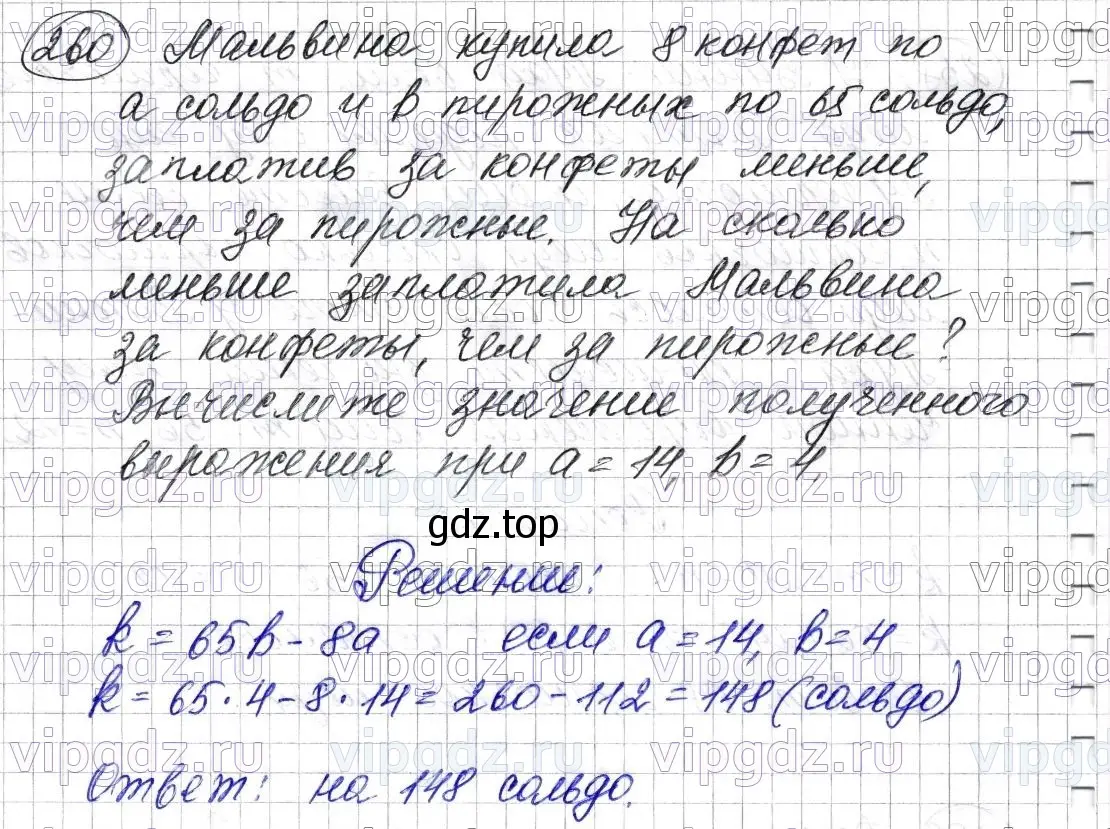 260 Мальвина купила 8 конфет по
а сольдо и в пирожных по 65 сольдо,
заплатив за конфеты меньше,
чем за пирожные. На сколько
меньше заплатила Мальвина
за конфеты, чем за пирожные?
Вычислите значение полученного
выражения при a = 14, b = 4
gdz.top
Решение:
k = 65b - 8a если a = 14, b = 4
k = 65 · 4 - 8 · 14 = 260 - 112 = 148 (сольдо)
Ответ: на 148 сольдо.
vipgdz.ru